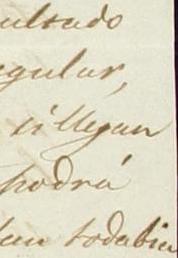 ultado
egular,
si llegan
podrá
tan todabia